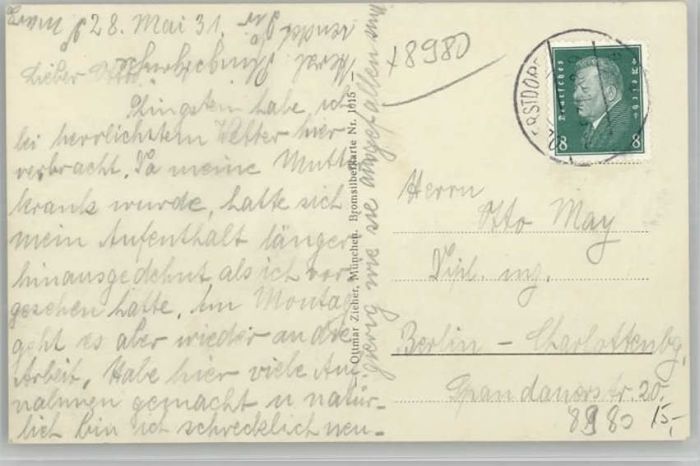 28. Mai 31.
Lieber Otto,
Pfingsten habe ich
bei herrlichstem Wetter hier
verbracht. Da meine Mutter
krank wurde, hatte sich
mein Aufenthalt länger
hinausgedehnt als ich vor-
gesehen hatte. Am Montag
geht es aber wieder an die
Arbeit. Habe hier viele Auf-
nahmen gemacht u natür-
lich bin ich schrecklich neu-
gierig wie sie ausgefallen sind
sendet Dir
Erwin
Ottmar Zieher, München. Bromsilberkarte Nr. 1015
+8980
Deutsches Reich
8 8
Herrn
Otto May
Dipl. ing.
Berlin – Charlottenbg,
Spandauerstr. 20.
8980 15,-